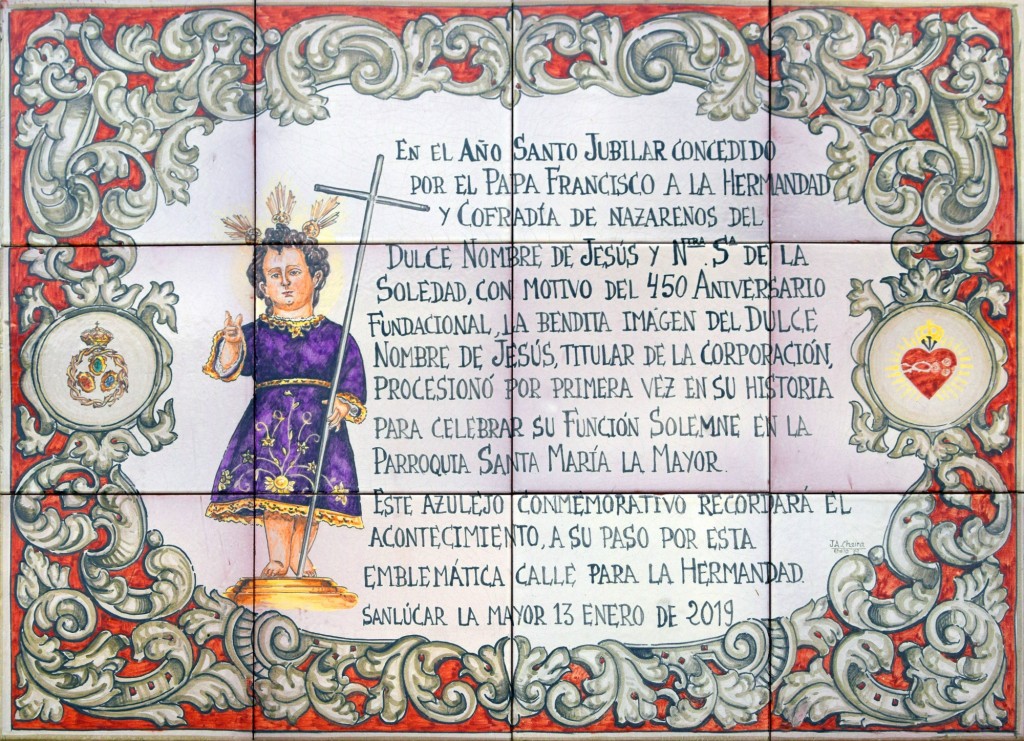 En el Año Santo Jubilar concedido
por el Papa Francisco a la Hermandad
y Cofradía de nazarenos del
Dulce Nombre de Jesús y Ntra. Sª de la
Soledad, con motivo del 450 Aniversario
Fundacional, la bendita imágen del Dulce
Nombre de Jesús, titular de la corporación,
procesionó por primera vez en su historia
para celebrar su Función Solemne en la
Parroquia Santa María la Mayor.
Este azulejo conmemorativo recordará el
acontecimiento, a su paso por esta
emblemática calle para la Hermandad.
Sanlúcar la Mayor 13 enero de 2019